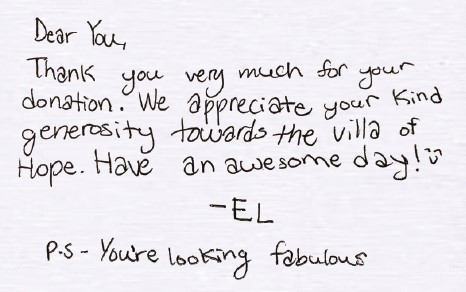 Dear You,
Thank you very much for your
donation. We appreciate your Kind
generosity towards the villa of
Hope. Have an awesome day!
-EL
P.S - You're looking fabulous